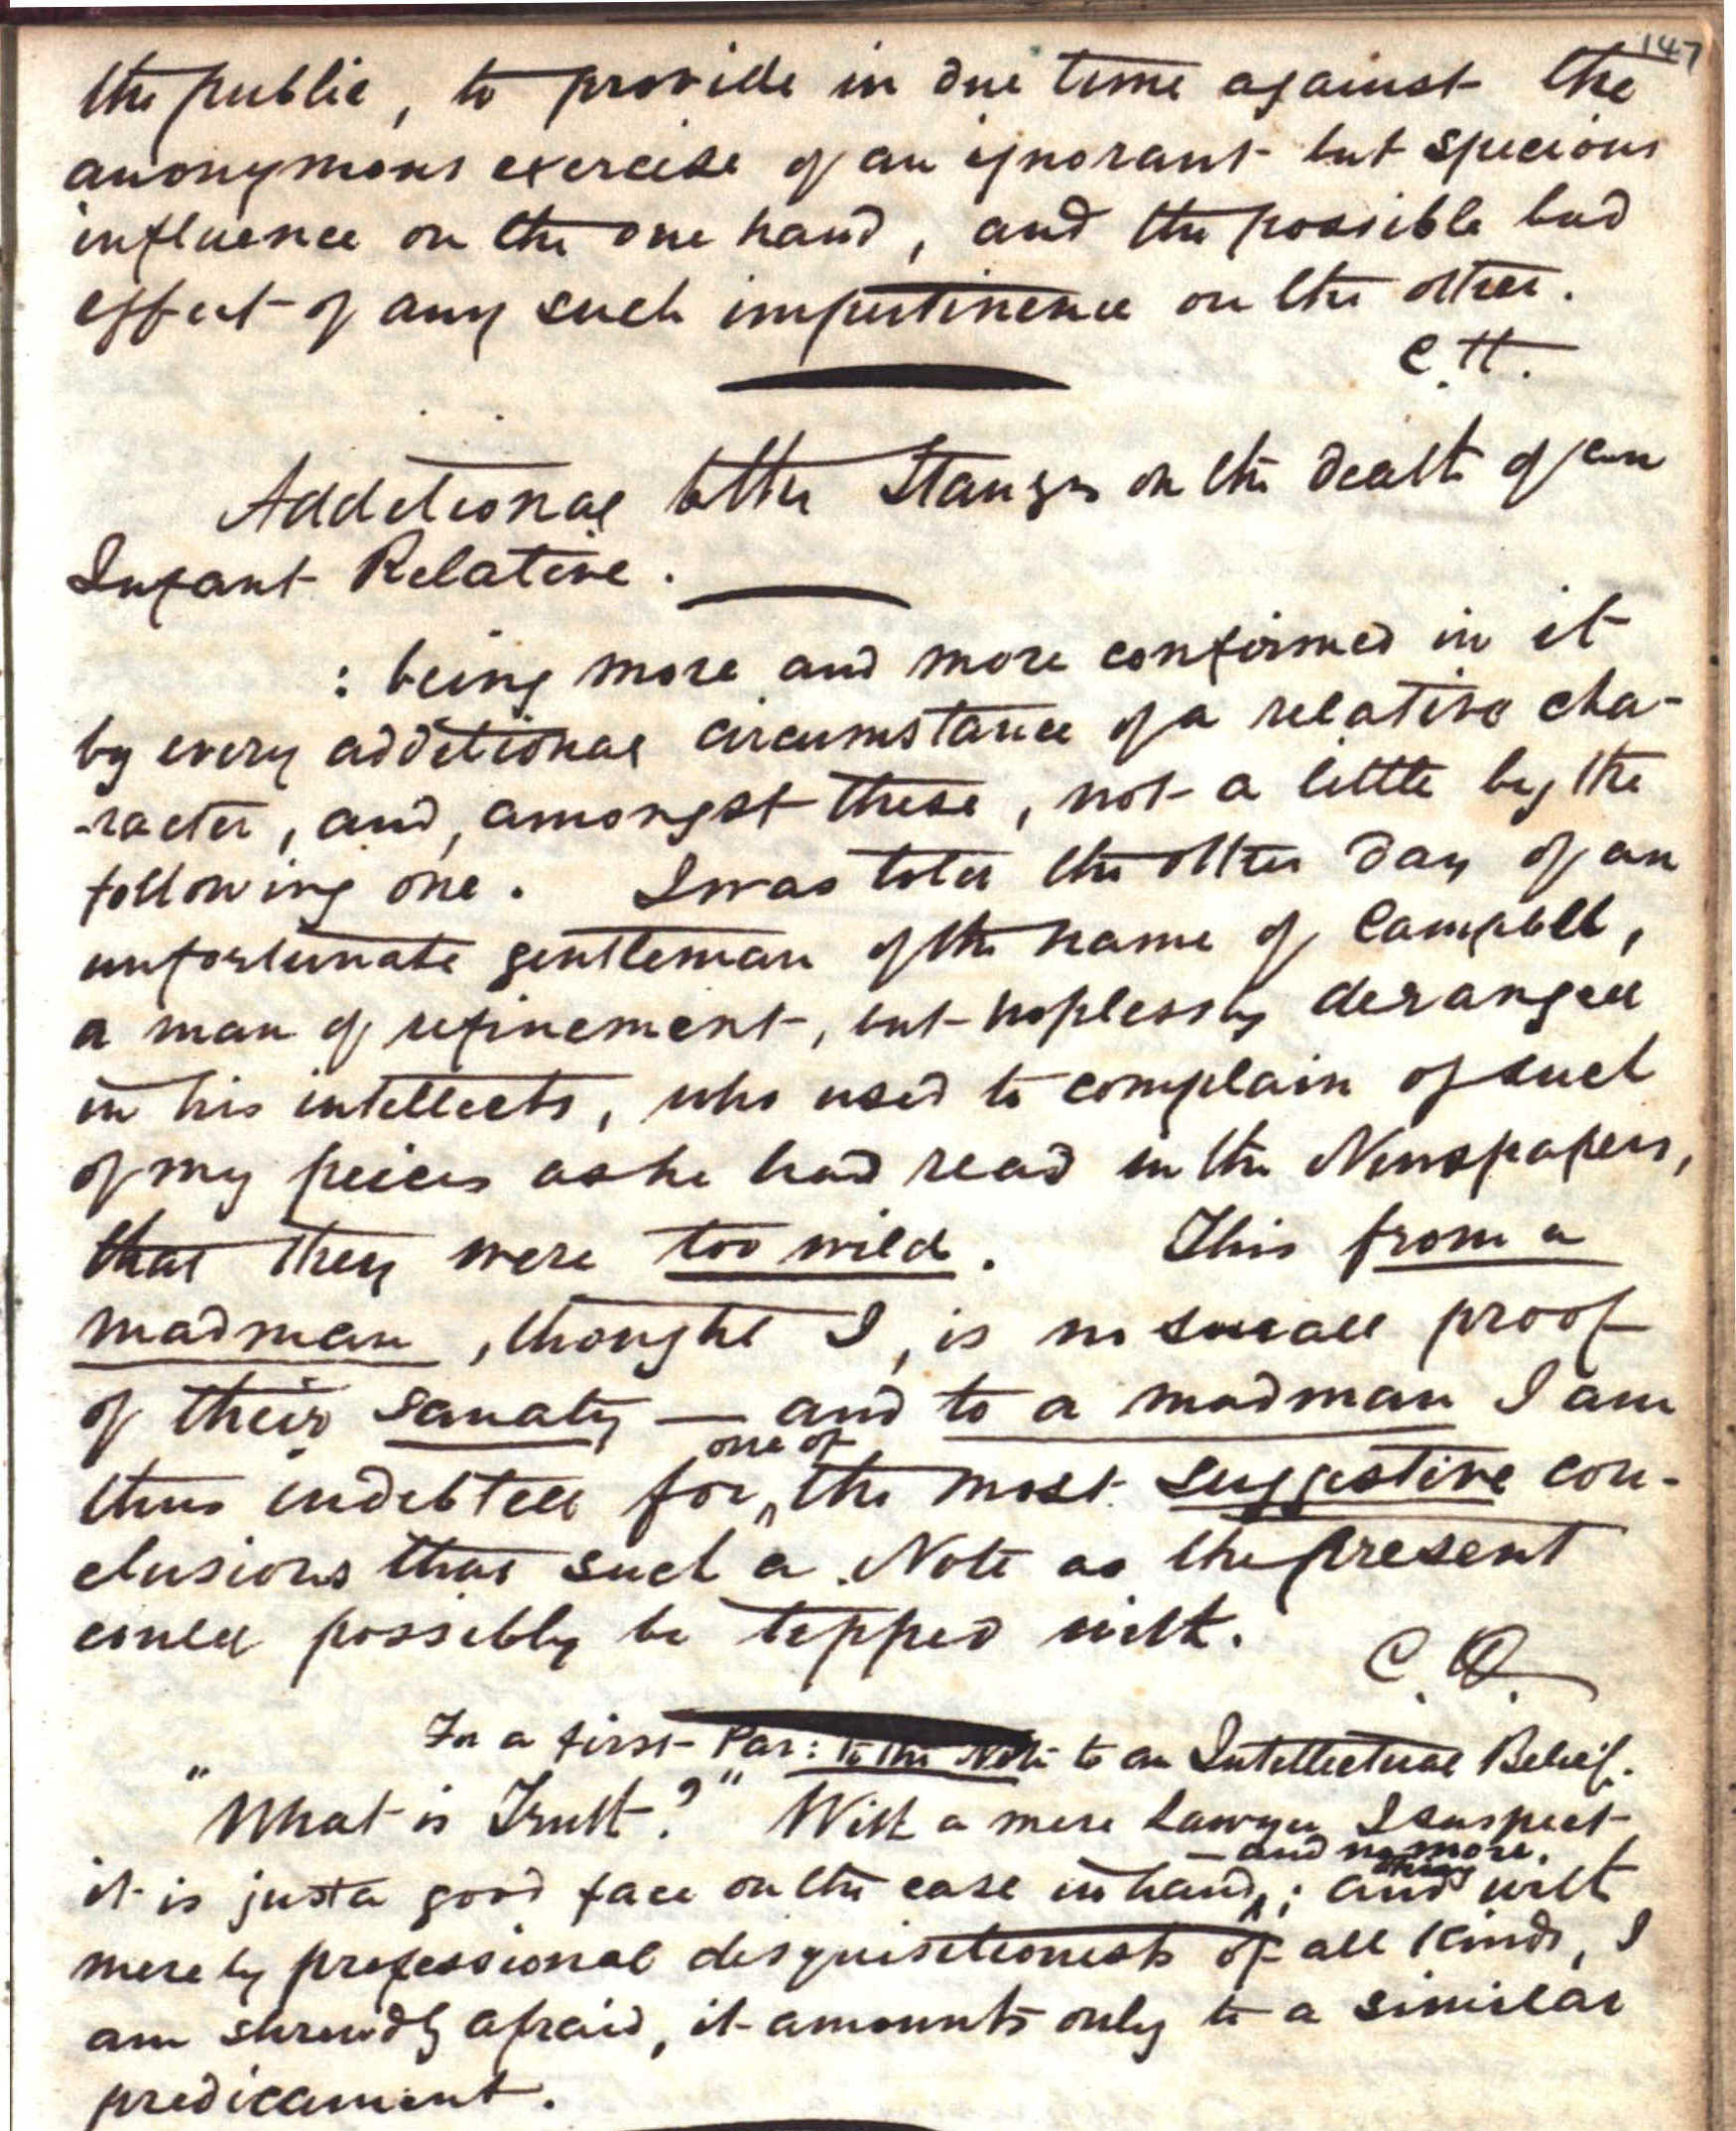 147
the public, to provide in due time against the
anonymous exercise of an ignorant but specious
influence on the one hand, and the possible bad
effect of any such impertinence on the other.
C. H.
Additional to the Stanzas on the death of an
Infant Relative.
: being more and more confirmed in it
by every additional circumstance of a relative cha-
-racter, and, amongst these, not a little by the
following one. I was told the other day of an
unfortunate gentleman of the name of Campbell,
a man of refinement, but hoplessly deranged
in his intellects, who used to complain of such
of my peices as he had read in the Newspapers,
that they were too wild. This from a
madman, thought I, is no small proof
of their sanaty — and to a madman I am
one of
thus indebted for the most suggestive con-
clusions that such a Note as the present
could possibly be topped with.
C. H.
In a first Par: to the Note to an Intellectual Belief.
"What is Truth?" With a mere Lawyer I suspect
— and no more.
it is just a good face on the case in hand; and with
merely professional disquisitionests of all kinds, I
am shrewdly afraid, it amounts only to a similar
predicament.